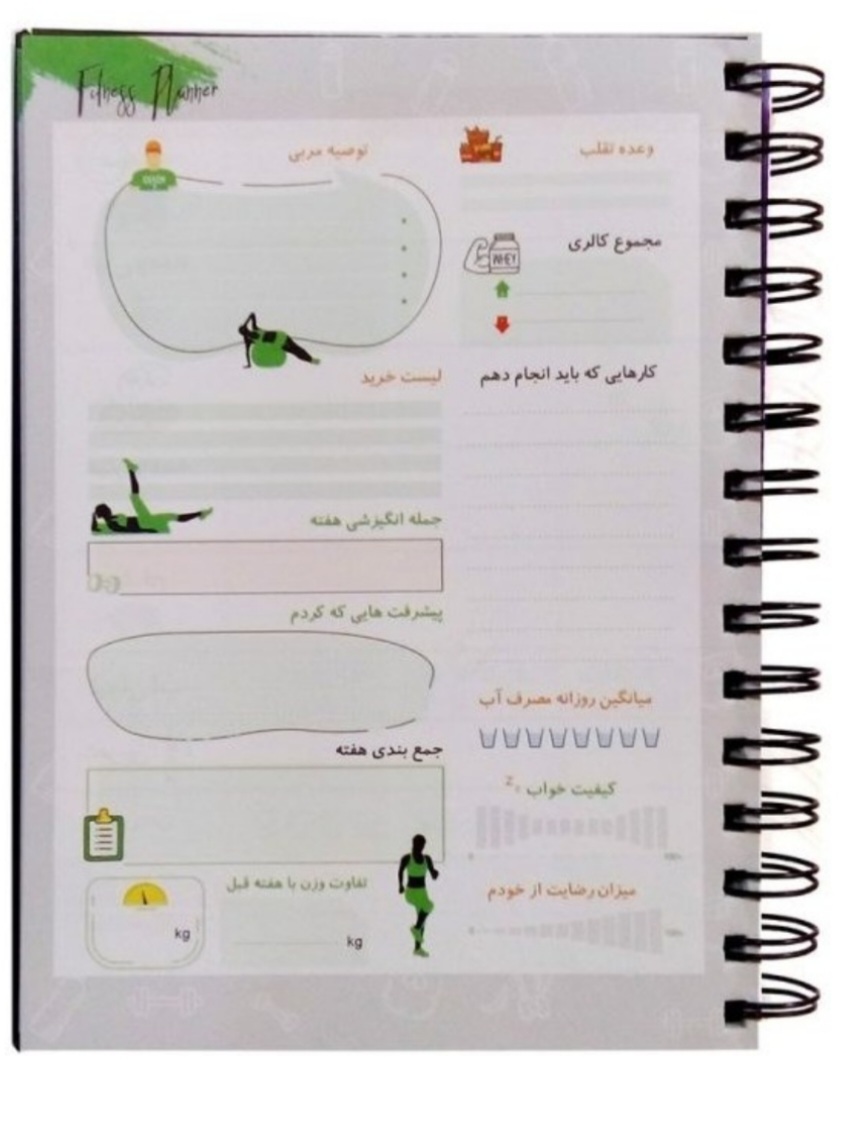 Fitness Planner
وعده تقلب
مجموع کالری
WHEY
کارهایی که باید انجام دهم
میانگین روزانه مصرف آب
کیفیت خواب
میزان رضایت از خودم
توصیه مربی
لیست خرید
جمله انگیزشی هفته
پیشرفت هایی که کردم
جمع بندی هفته
تفاوت وزن با هفته قبل
kg
kg